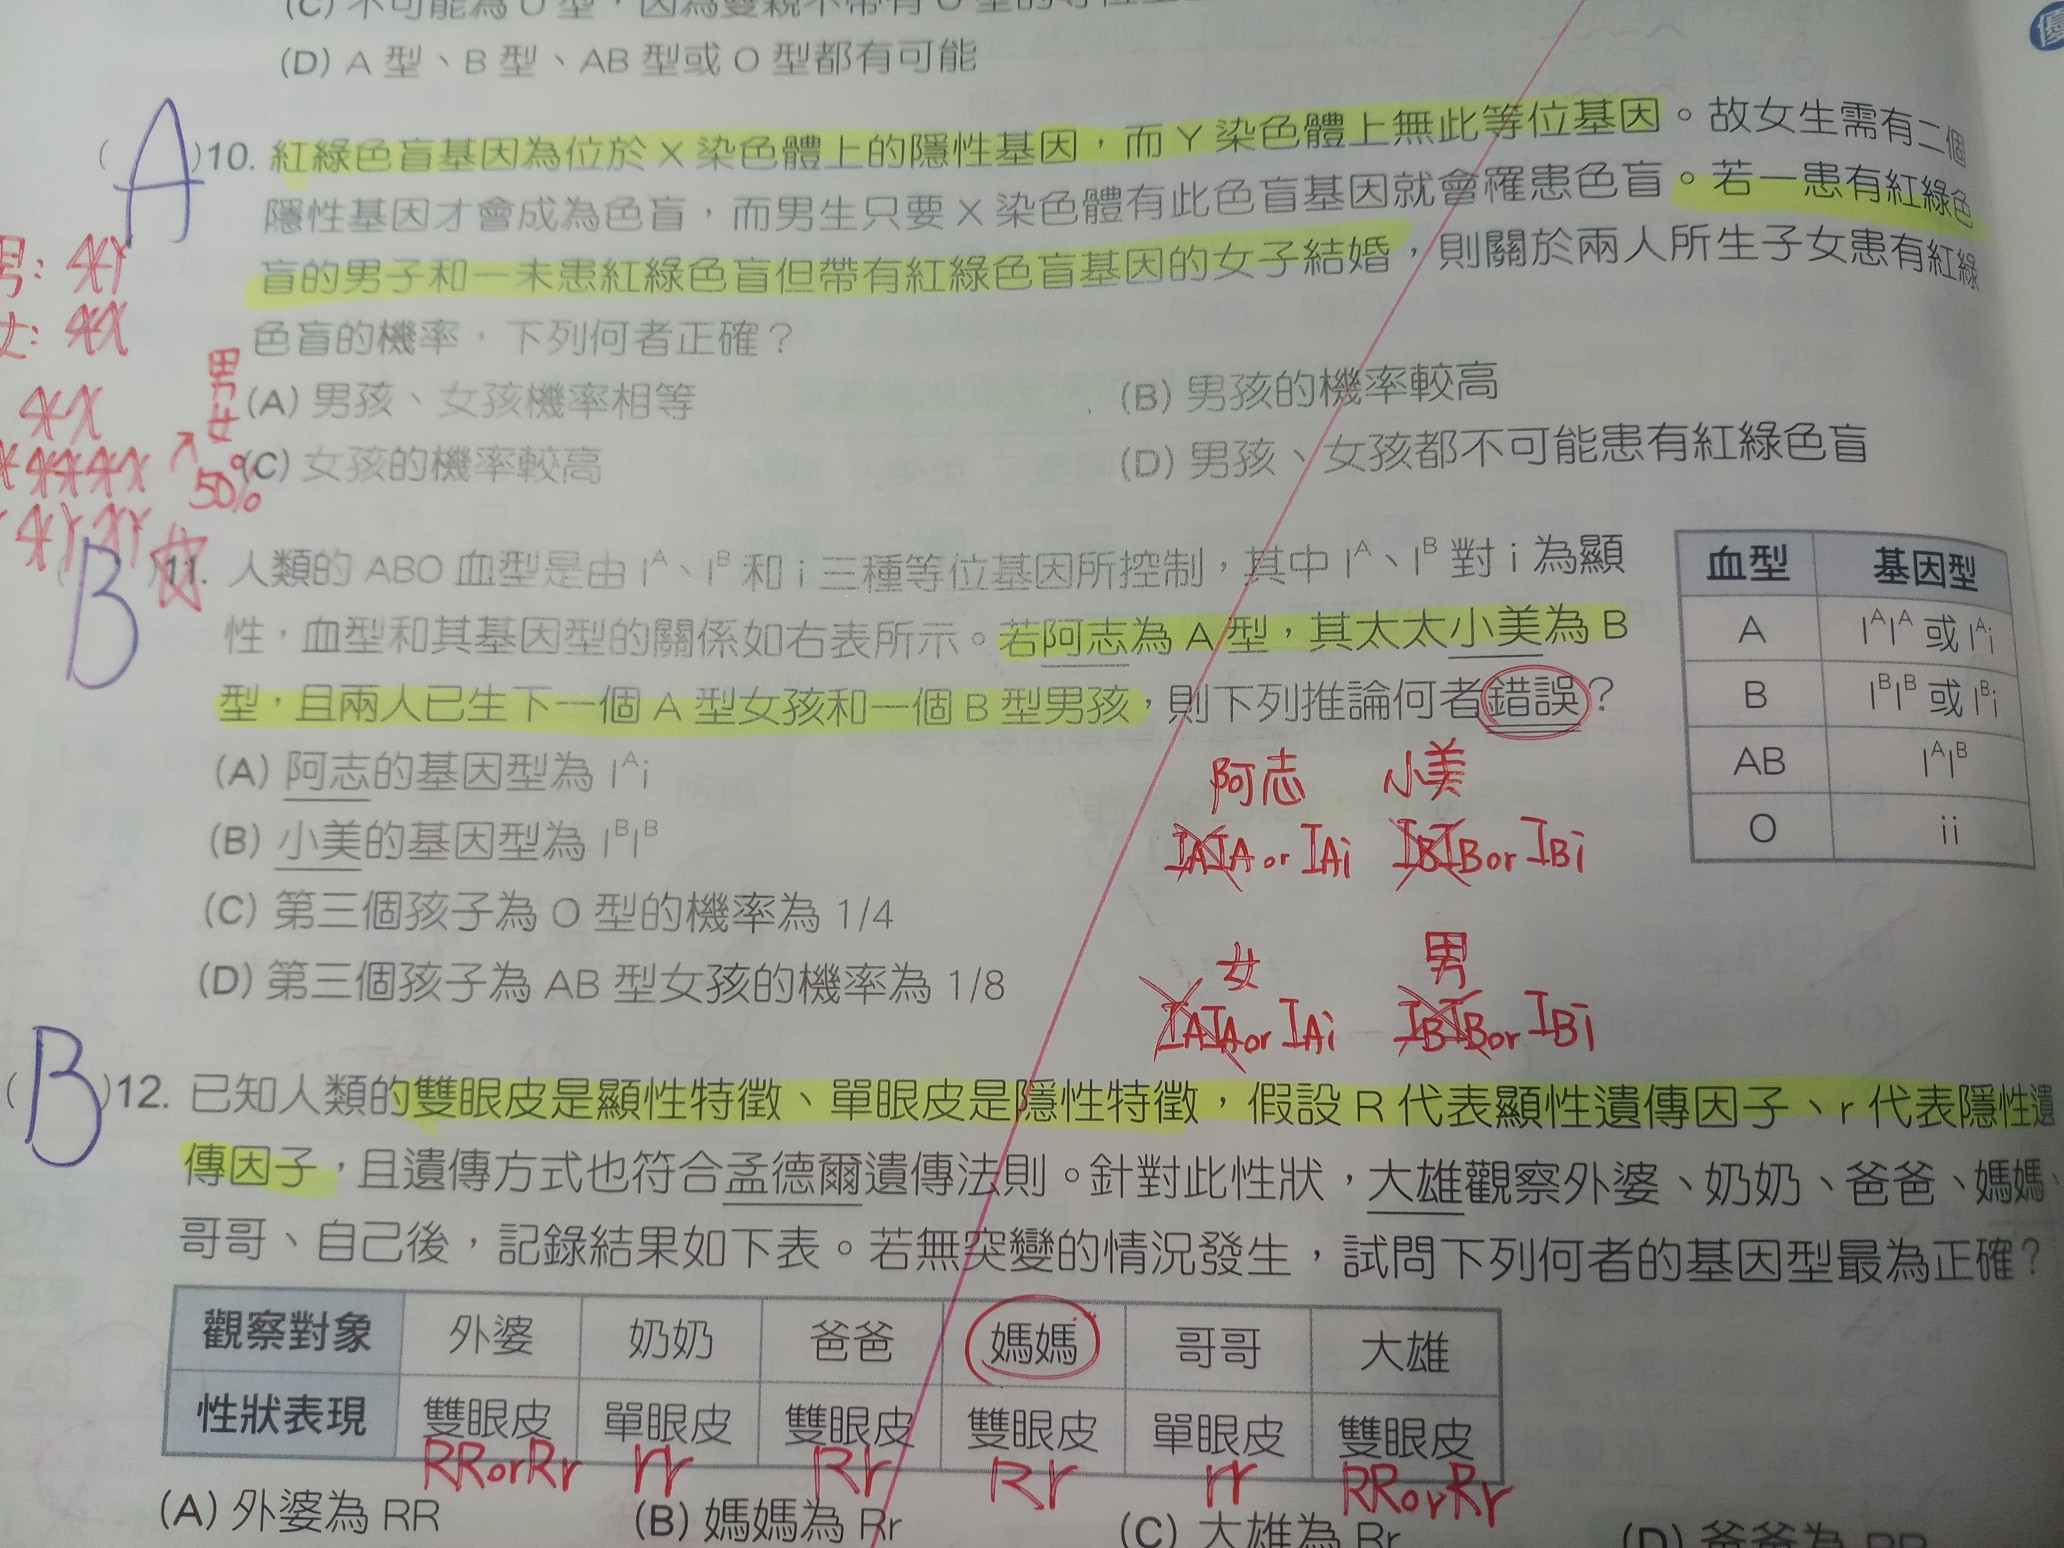 (C) 不可能為 O 型,因為雙親不帶有 O 型的等位
(D) A 型、B 型、AB 型或 O 型都有可能
( A )10. 紅綠色盲基因為位於 X 染色體上的隱性基因,而 Y 染色體上無此等位基因。故女生需有二個
隱性基因才會成為色盲,而男生只要 X 染色體有此色盲基因就會罹患色盲。若一患有紅綠色
盲的男子和一未患紅綠色盲但帶有紅綠色盲基因的女子結婚,則關於兩人所生子女患有紅綠
色盲的機率,下列何者正確?
(A) 男孩、女孩機率相等
(B) 男孩的機率較高
(C) 女孩的機率較高
(D) 男孩、女孩都不可能患有紅綠色盲
男: XY
女: XX
XX
男
女
50%
( B )11. 人類的 ABO 血型是由 Iᴬ、Iᴮ 和 i 三種等位基因所控制,其中 Iᴬ、Iᴮ 對 i 為顯
性,血型和其基因型的關係如右表所示。若阿志為 A 型,其太太小美為 B
型,且兩人已生下一個 A 型女孩和一個 B 型男孩,則下列推論何者錯誤?
(A) 阿志的基因型為 Iᴬi
(B) 小美的基因型為 IᴮIᴮ
(C) 第三個孩子為 O 型的機率為 1/4
(D) 第三個孩子為 AB 型女孩的機率為 1/8
血型 基因型
A IᴬIᴬ 或 Iᴬi
B IᴮIᴮ 或 Iᴮi
AB IᴬIᴮ
O ii
阿志 小美
IAIA or IAi IBIB or IBi
女 男
IAIA or IAi IBIB or IBi
( B )12. 已知人類的雙眼皮是顯性特徵、單眼皮是隱性特徵,假設 R 代表顯性遺傳因子、r 代表隱性遺
傳因子,且遺傳方式也符合孟德爾遺傳法則。針對此性狀,大雄觀察外婆、奶奶、爸爸、媽媽、
哥哥、自己後,記錄結果如下表。若無突變的情況發生,試問下列何者的基因型最為正確?
觀察對象 外婆 奶奶 爸爸 媽媽 哥哥 大雄
性狀表現 雙眼皮 單眼皮 雙眼皮 雙眼皮 單眼皮 雙眼皮
RRorRr rr Rr Rr rr RRorRr
(A) 外婆為 RR
(B) 媽媽為 Rr
(C) 大雄為 Rr
(D) 爸爸為 RR
優